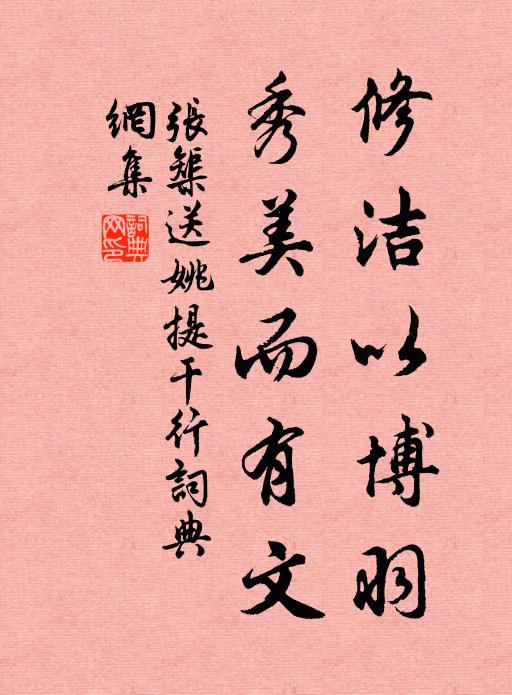 修洁以博羽
秀美而有文
張榘送姚提干行詞典
網集
詞典網印